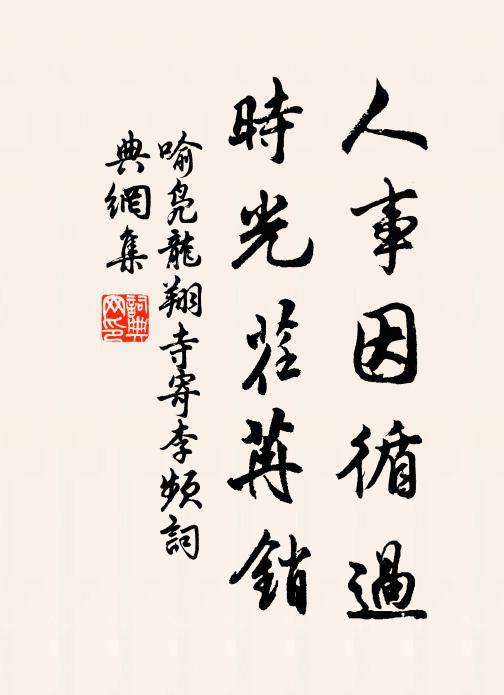 人事因循過
時光荏苒銷
喻鳧龍翔寺寄李頻詞
典網集
詞典網印